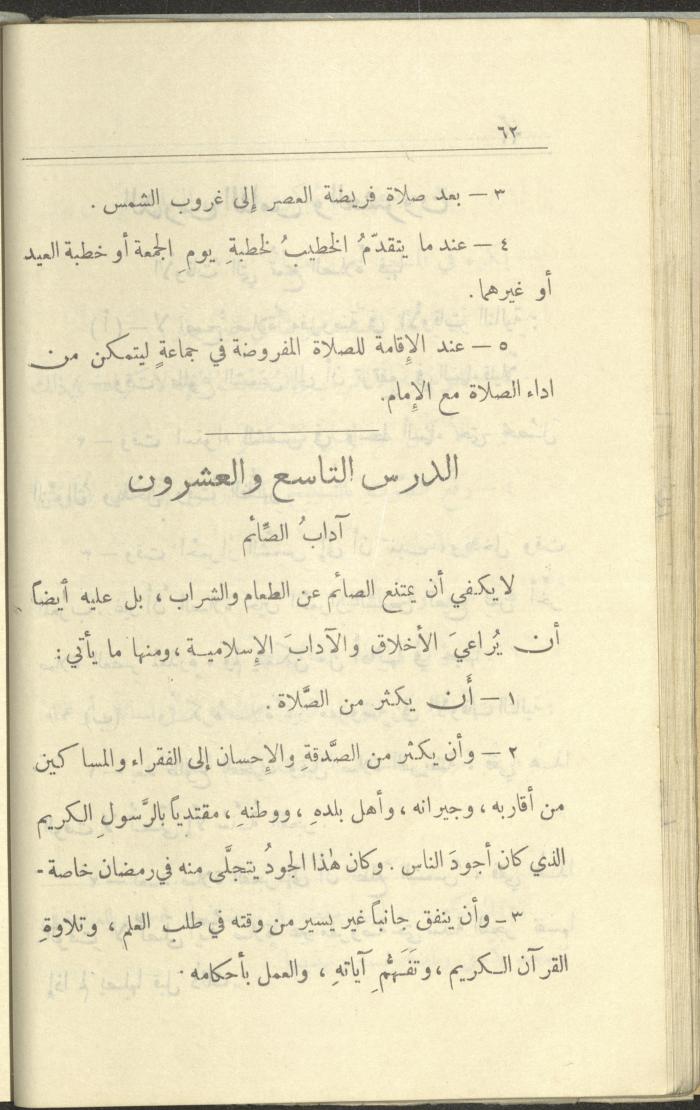 ٦٢
٣ — بعد صلاة فريضة العصر إلى غروب الشمس .
٤ — عند ما يتقدّمُ الخطيبُ لخطبةِ يومِ الجمعة أو خطبة العيد
أو غيرهما.
٥ — عند الإقامة للصلاة المفروضة في جماعةٍ ليتمكن من
اداء الصلاة مع الإمام.
الدرس التاسع والعشرون
آدابُ الصَّائم
لا يكفي أن يمتنع الصائم عن الطعام والشراب ، بل عليه أيضاً
أن يُراعيَ الأخلاق والآدابَ الإسلامية ، ومنها ما يأتي :
١ — أَن يكثر من الصَّلاة .
٢ — وأن يكثر من الصَّدقةِ والإحسان إلى الفقراء والمساكين
من أقاربه ، وجيرانه ، وأهل بلدهِ ، ووطنهِ ، مقتدياً بالرَّسولِ الكريم
الذي كان أجودَ الناس . وكان هٰذا الجودُ يتجلَّى منه في رمضان خاصة -
٣ - وأن ينفق جانباً غير يسير من وقته في طلب العلم ، وتلاوةِ
القرآن الكريم ، وتَفَهُّمِ آياتهِ ، والعمل بأحكامه .